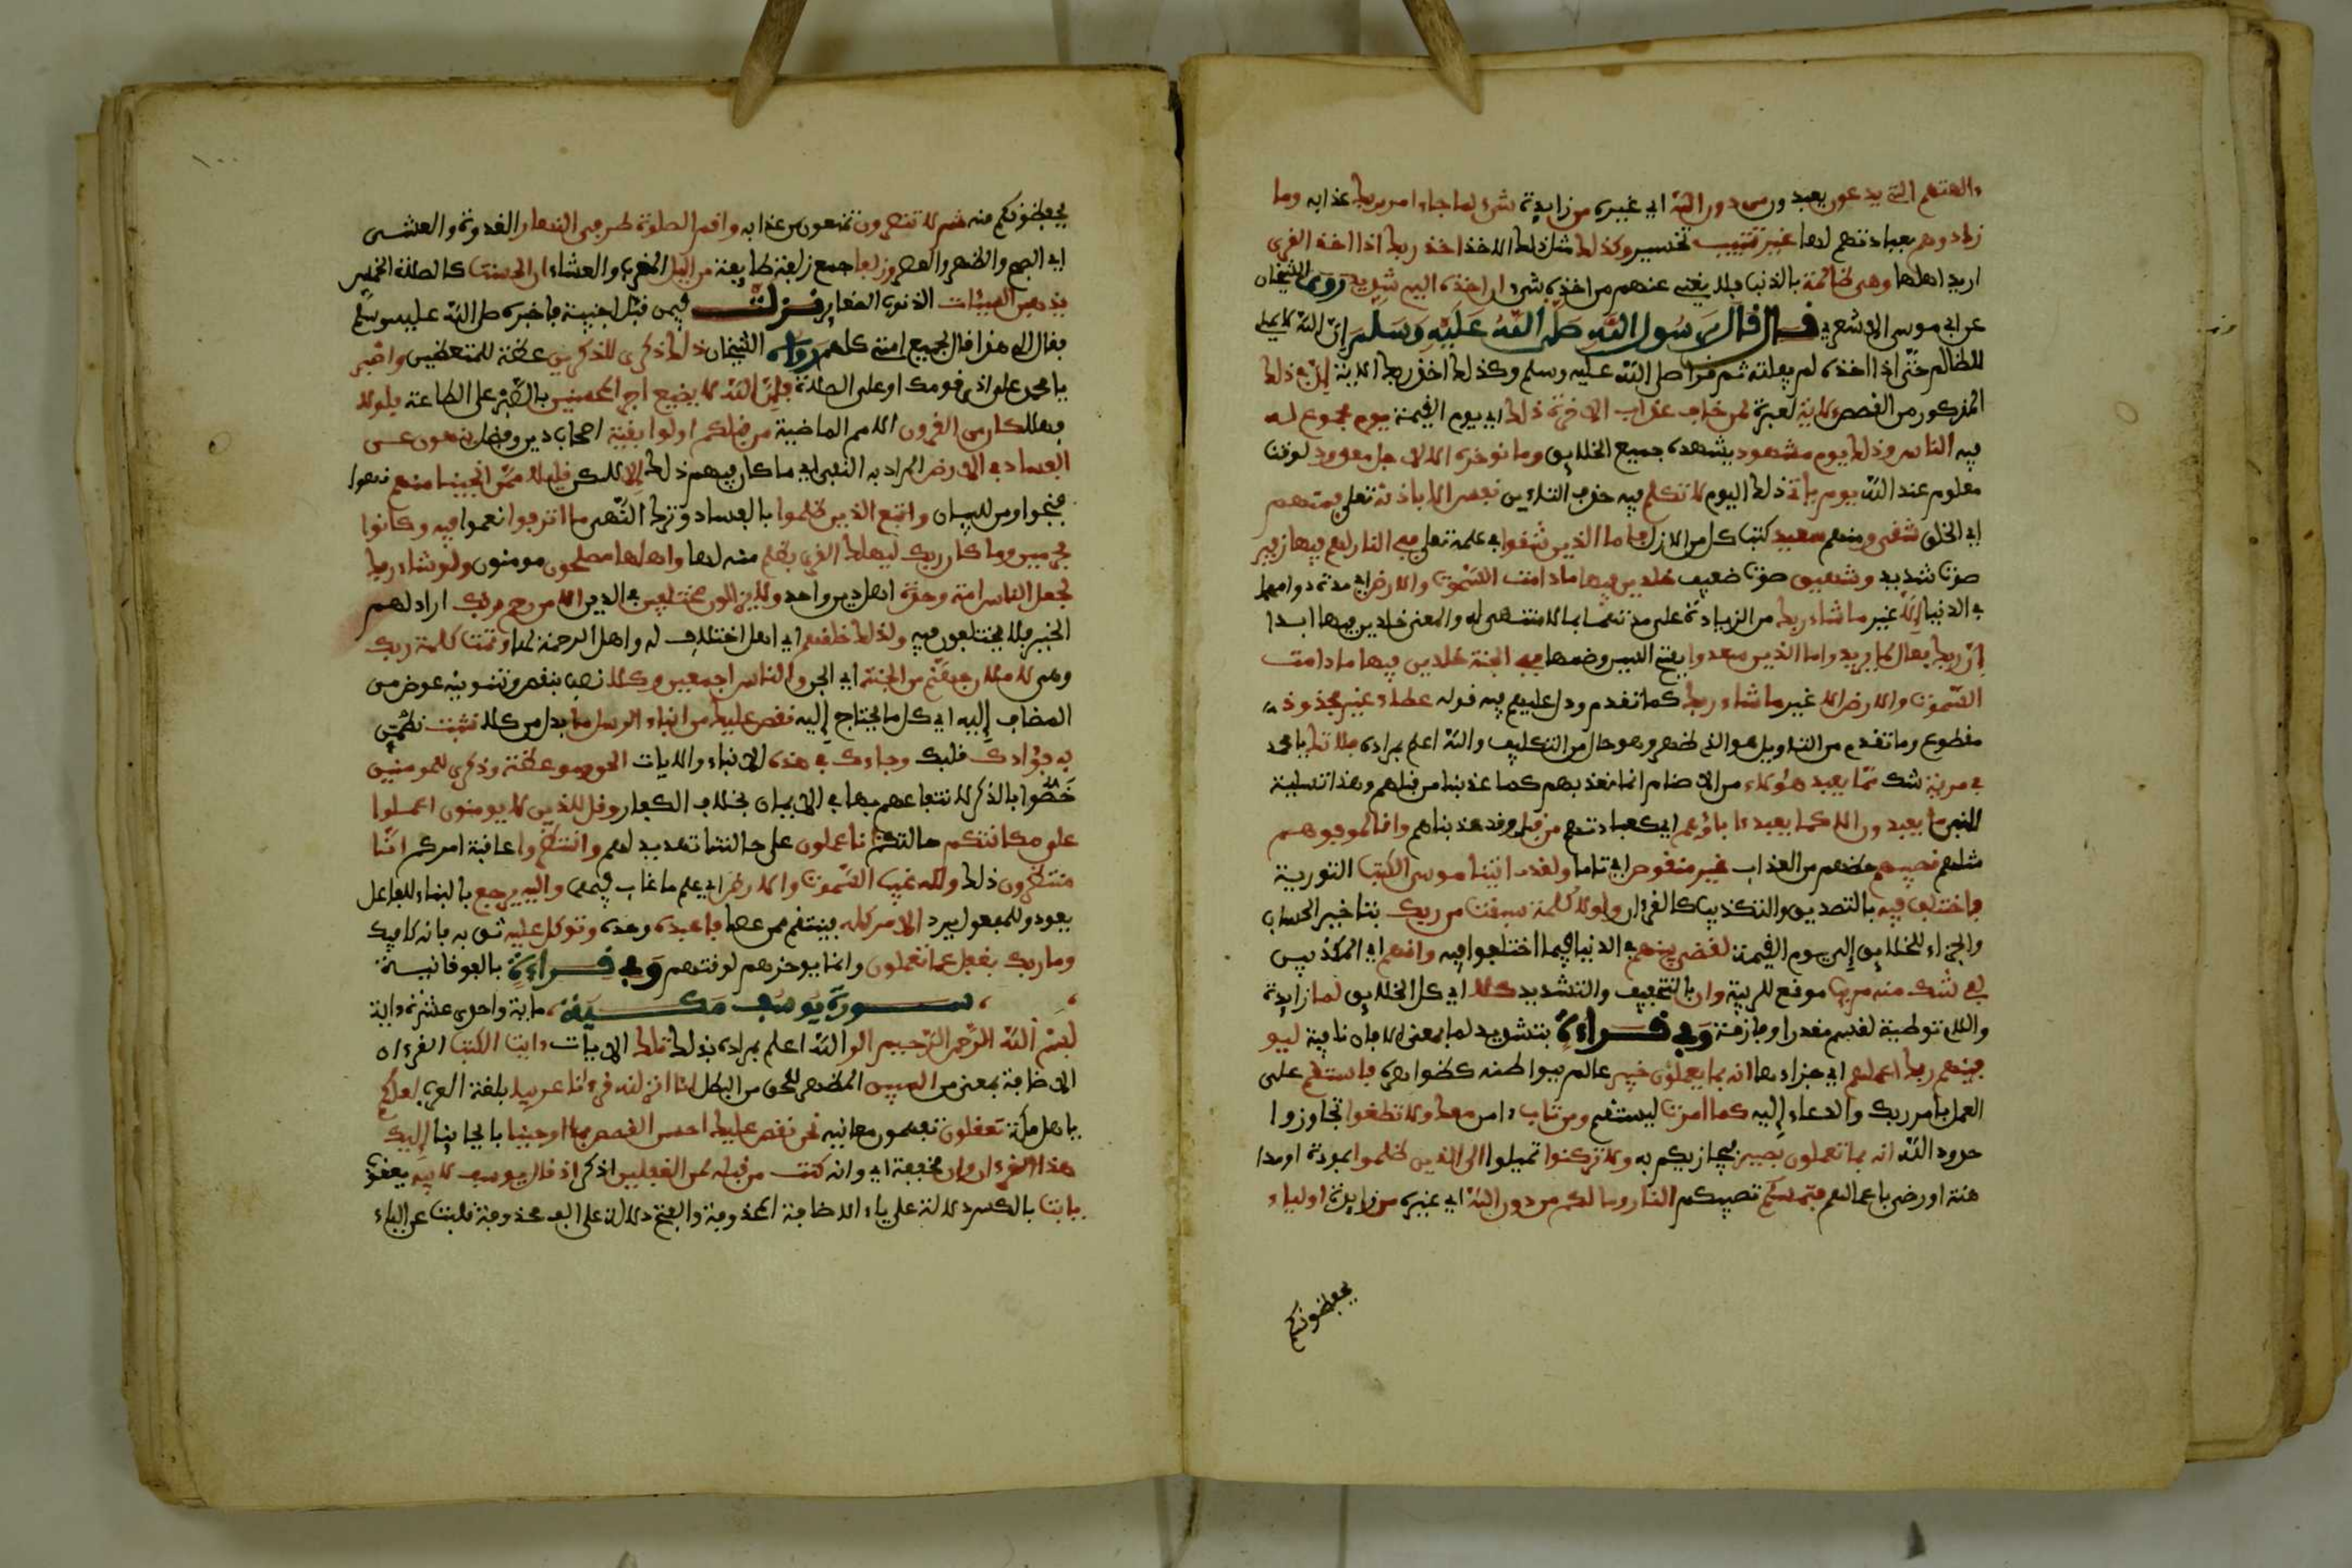 ءالهتهم التى يدعون يعبدون من دون الله اي غيره من زايدة شىء لما جاء امر ربك عذابه وما
زادوهم بعبادتهم لها غير تتبيب تخسير وكذلك مثل ذلك الاخذ اخذ ربك اذا اخذ القرى
اريد اهلها وهى ظالمة بالذنوب فلا يغنى عنهم من اخذه شىء ان اخذه اليم شديد روى الشيخان
عن ابي موسى الاشعري قال قال رسول الله صلى الله عليه وسلم ان الله ليملى
للظالم حتى اذا اخذه لم يفلته ثم قرا صلى الله عليه وسلم وكذلك اخذ ربك الاية ان فى ذلك
المذكور من القصص لاية لعبرة لمن خاف عذاب الاخرة ذلك اي يوم القيمة يوم مجموع له
فيه الناس وذلك يوم مشهود يشهده جميع الخلايق وما نوخره الا لاجل معدود لوقت
معلوم عند الله يوم يات ذلك اليوم لا تكلم فيه حذف احدى التاءين نفس الا باذنه تعلى فمنهم
اي الخلق شقى ومنهم سعيد كتب كل من الازل فاما الذين شقوا فى علمه تعلى ففى النار لهم فيها زفير
صوت شديد وشهيق صوت ضعيف خلدين فيها ما دامت السموت والارض اي مدة دوامهما
فى الدنيا الا غير ما شاء ربك من الزيادة على مدتهما مما لا منتهى له والمعنى خالدين فيها ابدا
ان ربك فعال لما يريد واما الذين سعدوا بفتح السين وضمها ففى الجنة خلدين فيها ما دامت
السموت والارض الا غير ما شاء ربك كما تقدم ودل عليهم فيه قوله عطاء غير مجذوذ
مقطوع وما تقدم من التاويل هو الذى ظهر وهو خال من التكليف والله اعلم بمراده فلا تك يا محمد
فى مرية شك مما يعبد هؤلاء من الاصنام انا نعذبهم كما عذبنا من قبلهم وهذا تسلية
للنبى ما يعبدون الا كما يعبد ءاباؤهم اي كعبادتهم من قبل وقد عذبناهم وانا لموفوهم
مثلهم نصيبهم حظهم من العذاب غير منقوص اي تاما ولقد اتينا موسى الكتب التورية
فاختلف فيه بالتصديق والتكذيب كالقرءان ولولا كلمة سبقت من ربك بتاخير الحساب
والجزاء للخلايق الى يوم القيمة لقضى بينهم فى الدنيا فيما اختلفوا فيه وانهم اي المكذبين
لفى شك منه مريب موقع للريبة وان بالتخفيف والتشديد كلا اي كل الخلايق لما زايدة
واللام توطية لقسم مقدر او فارقة وفى قراءة بتشديد لما بمعنى الا فان نافية ليو
فينهم ربك اعملهم اي جزاءها انه بما يعملون خبير عالم ببواطنه كظواهره فاستقم على
العمل بامر ربك والدعاء اليه كما امرت ليستقم ومن تاب ءامن معك ولا تطغوا تجاوزوا
حدود الله انه بما تعملون بصير فيجازيكم به ولا تركنوا تميلوا الى الذين ظلموا بمودة او مدا
هنة او رضى باعمالهم فتمسكم تصيبكم النار وما لكم من دون الله اي غيره من زايدة اولياء
يحفظونكم
١٠٠
يحفظونكم منه ثم لا تنصرون تمنعون من عذابه واقم الصلوة طرفى النهار الغدوة والعشى
اي الصبح والظهر والعصر وزلفا جمع زلفة طايفة من اليل المغرب والعشاء ان الحسنت كالصلاة الخمس
يذهبن السيئات الذنوب الصغاير نزلت فيمن قبل اجنبية فاخبره صلى الله عليه وسلم
فقال الى هذا قال لجميع امتى كلهم رواه الشيخان ذلك ذكرى للذكرين عظة للمتعظين واصبر
يا محمد على اذى قومك او على الصلاة فان الله لا يضيع اجر المحسنين بالصبر على الطاعة فلولا
فهلا كان من القرون الامم الماضية من قبلكم اولوا بقية اصحاب دين وفضل ينهون عن
الفساد فى الارض المراد به النفى اي ما كان فيهم ذلك الا لكن قليلا ممن انجينا منهم نهوا
فنجوا ومن للبيان واتبع الذين ظلموا بالفساد وترك النهى ما اترفوا نعموا فيه وكانوا
مجرمين وما كان ربك ليهلك القرى بظلم منه لها واهلها مصلحون مومنون ولو شاء ربك
لجعل الناس امة وحدة اهل دين واحد ولا يزالون مختلفين فى الدين الا من رحم ربك اراد لهم
الخير فلا يختلفون فيه ولذلك خلقهم اي اهل اختلاف له واهل الرحمة لها وتمت كلمة ربك
وهى لاملان جهنم من الجنة اي الجن والناس اجمعين وكلا نصب بنقص وتنوينه عوض من
المضاف اليه اي كل ما يحتاج اليه نقص عليك من انباء الرسل ما بدل من كلا نثبت نطمئن
به فؤادك قلبك وجاءك فى هذه الانباء والايات الحق وموعظة وذكرى للمومنين
خصوا بالذكر لانتفاعهم بها فى الايمان بخلاف الكفار وقل للذين لا يومنون اعملوا
على مكانتكم حالتكم انا عملون على حالتنا تهديد لهم وانتظروا عاقبة امركم انا
منتظرون ذلك ولله غيب السموت والارض اي علم ما غاب فيهما واليه يرجع بالبناء للفاعل
يعود وللمفعول يرد الامر كله فينتقم ممن عصا فاعبده وحده وتوكل عليه ثق به فانه كافيك
وما ربك بغفل عما تعملون وانما يوخرهم لوقتهم وفى قراءة بالفوقانية
سورة يوسف مكية ماية واحدى عشرة ءاية
بسم الله الرحمن الرحيم الر الله اعلم بمراده بذلك تلك الايات ءايت الكتب القرءان
الاضافة بمعنى من المبين المظهر للحق من البطل انا انزلنه قرءانا عربيا بلغة العرب لعلكم
يا اهل مكة تعقلون تفهمون معانيه نحن نقص عليك احسن القصص بما اوحينا بايحاينا اليك
هذا القرءان وان مخففة اي وانه كنت من قبله لمن الغفلين اذكر اذ قال يوسف لابيه يعقوب
يابت بالكسر دلالة على ياء الاضافة المحذوفة والفتح دلالة على الف محذوفة قلبت عن الياء